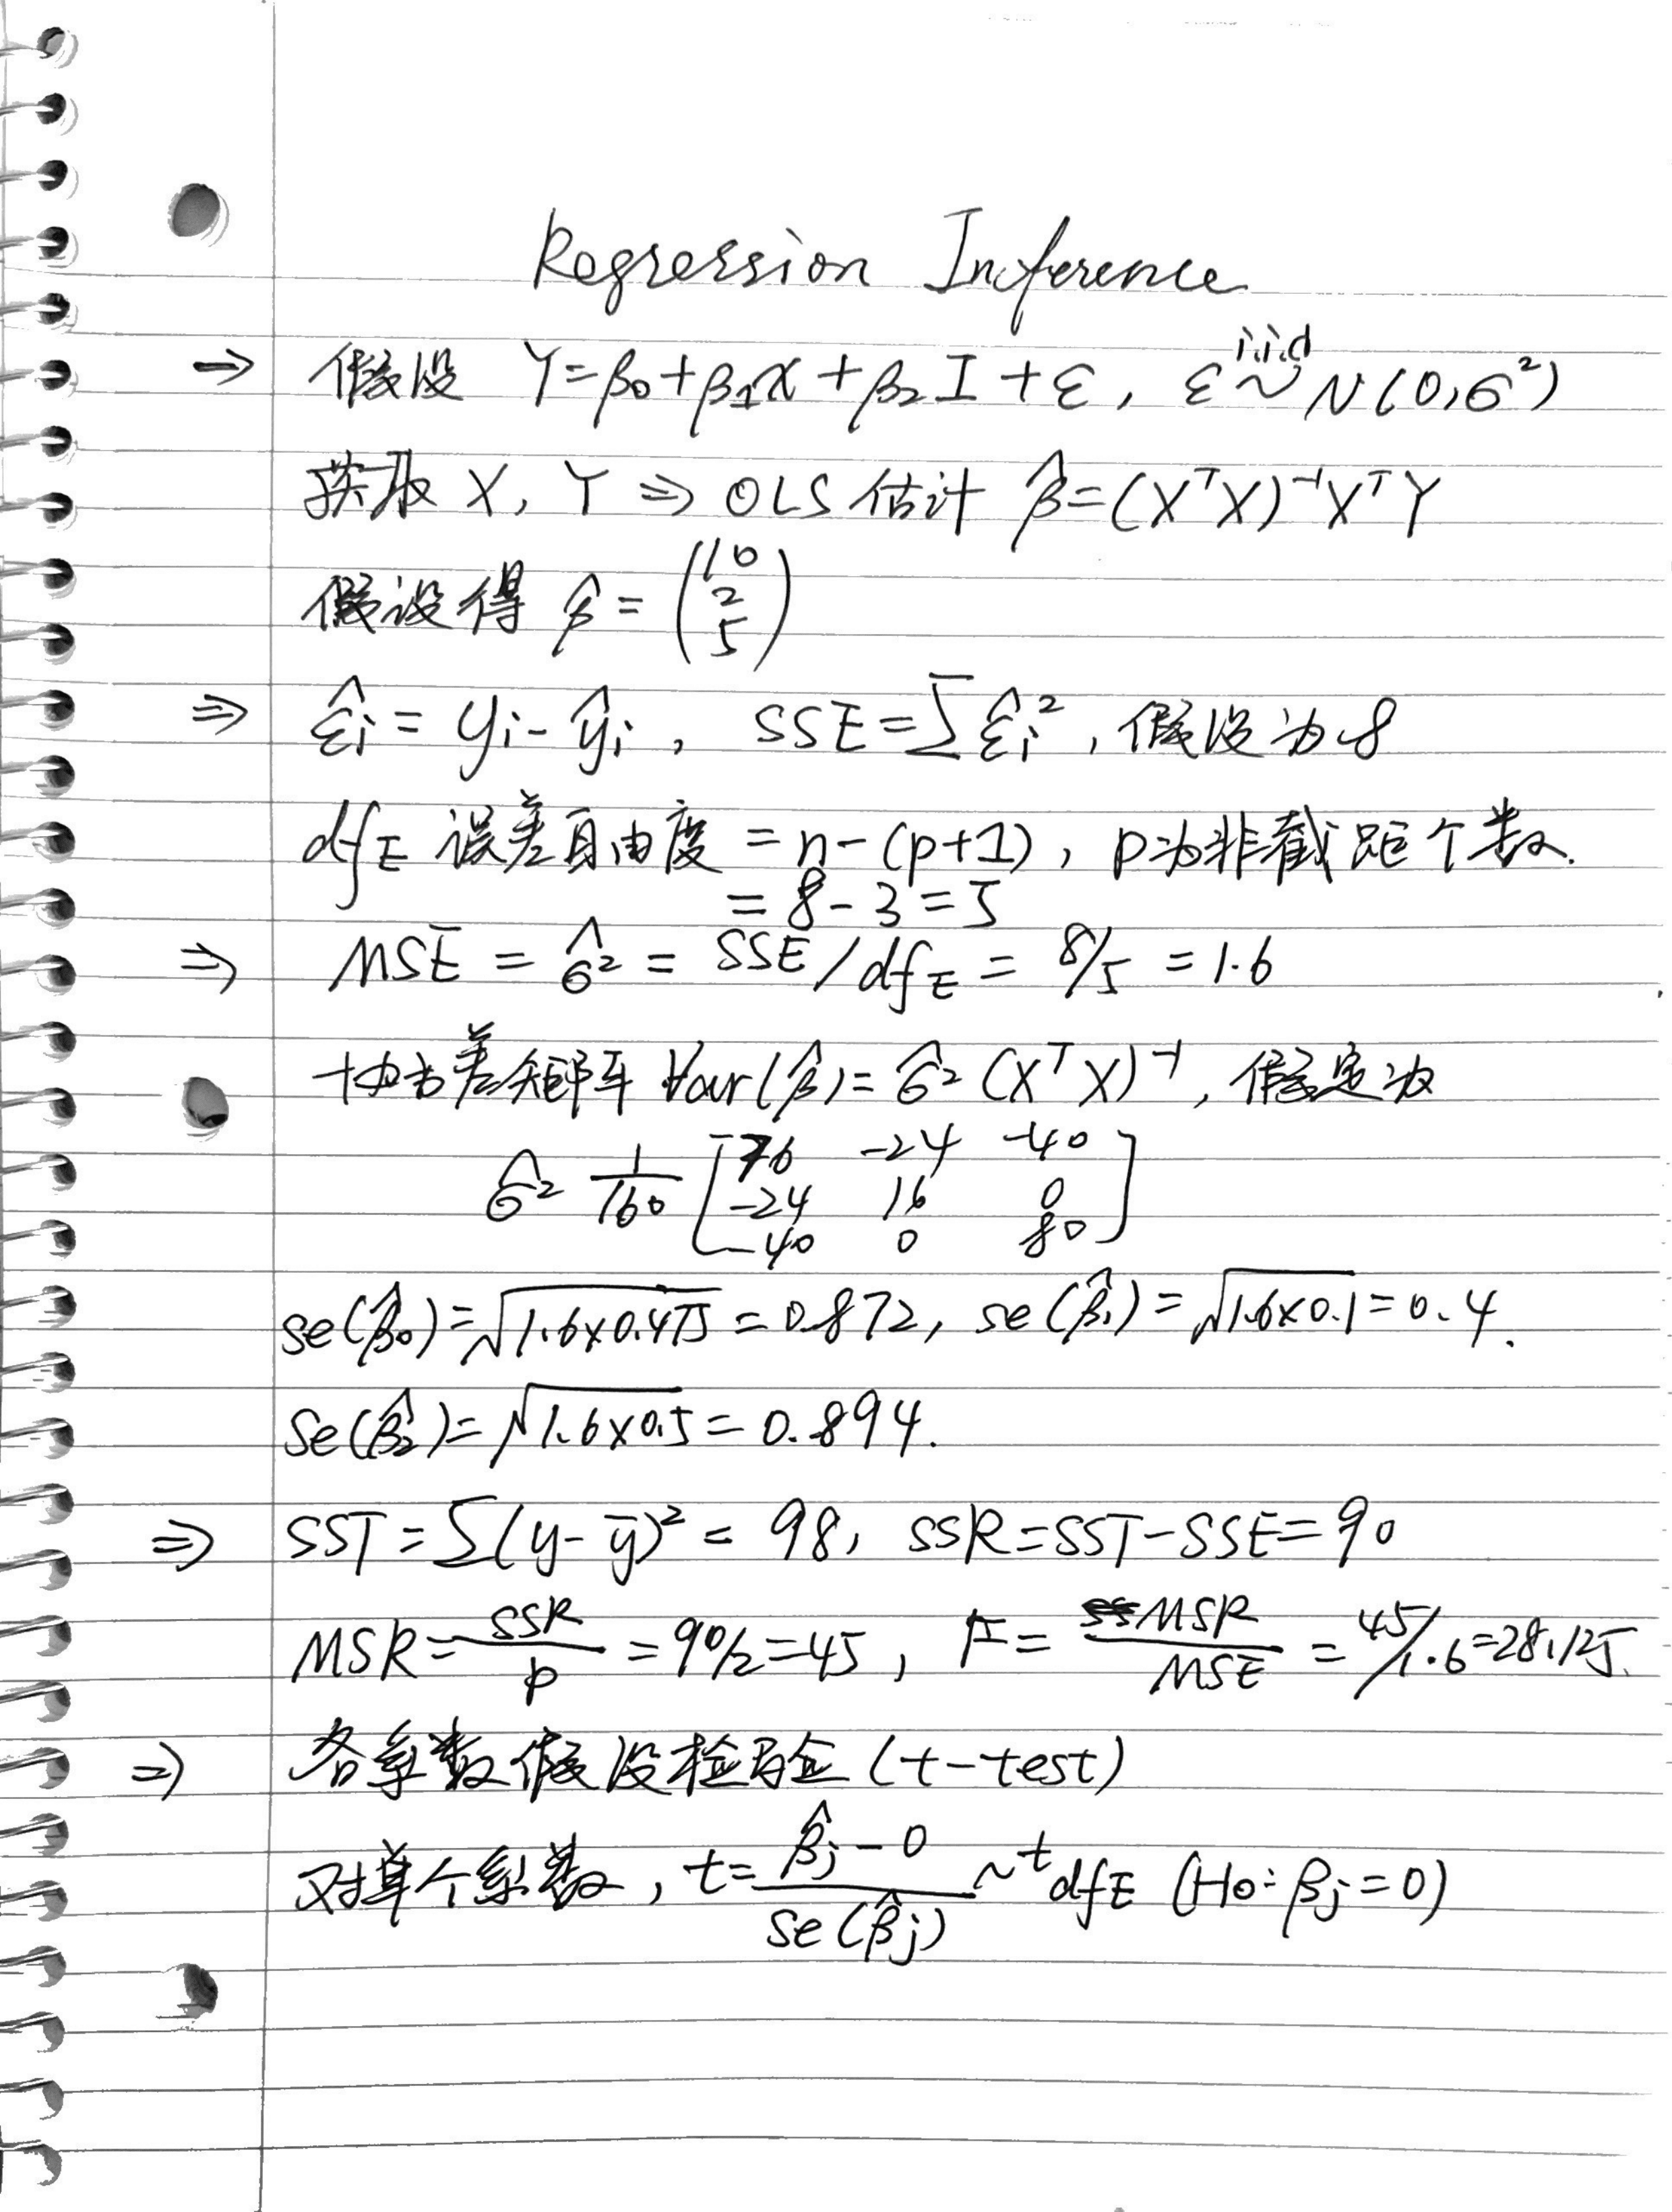 Regression Inference
→ 假设 Y=β₀+β₁x+β₂I+ε, ε i.i.d ~ N(0,σ²)
获取 X, Y ⇒ OLS 估计 β̂=(XᵀX)⁻¹XᵀY
假设得 β̂ = (10 2 5)
⇒ ε̂i = yi - ŷi, SSE=∑ε̂i², 假设为8
dfE 误差自由度 = n-(p+1), p为非截距个数.
= 8-3=5
⇒ MSE = σ̂² = SSE/dfE = 8/5 = 1.6
协方差矩阵 Var(β̂)=σ̂²(XᵀX)⁻¹, 假定为
σ̂² 1/160 [76 -24 -40
-24 16 0
-40 0 80]
se(β̂₀)=√1.6×0.475=0.872, se(β̂₁)=√1.6×0.1=0.4.
se(β̂₂)=√1.6×0.5=0.894.
⇒ SST=∑(y-ȳ)²= 98, SSR=SST-SSE=90
MSR=SSR/p=90/2=45, F=MSR/MSE=45/1.6=28.125.
⇒ 各系数假设检验(t-test)
对单个系数, t=(β̂j-0)/se(β̂j) ~ t dfE (H₀: βj=0)